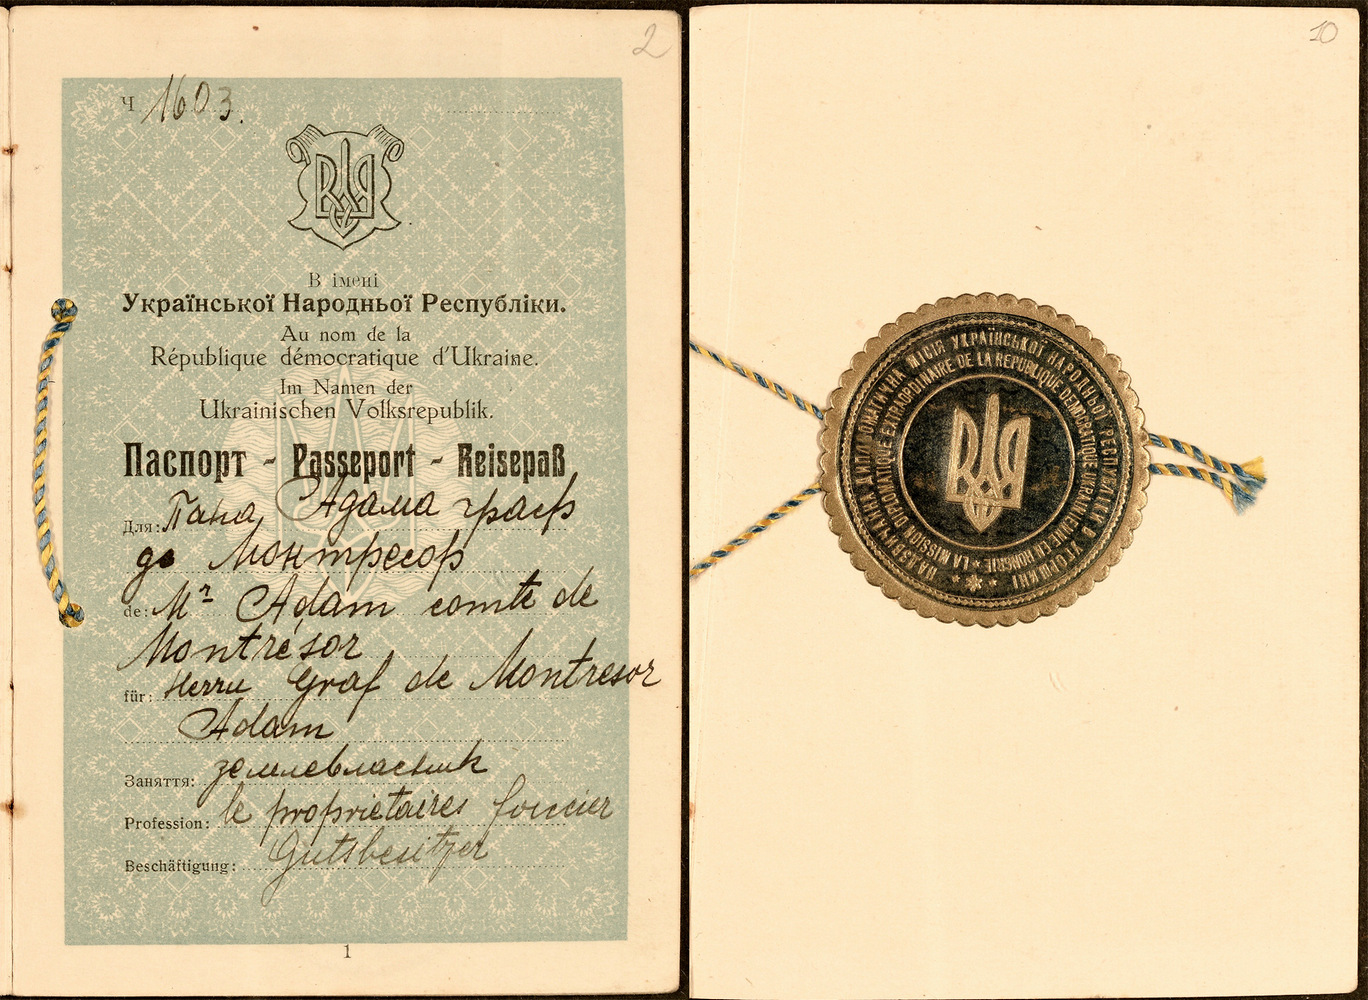 2
Ч. 1603.
В імені
Української Народньої Республіки.
Au nom de la
République démocratique d'Ukraine.
Im Namen der
Ukrainischen Volksrepublik.
Паспорт - Passeport - Reisepaß
Для: Пана Адама граф
де Монтресор
de: Mr Adam comte de
Montrésor
für: Herrn Graf de Montresor
Adam
Заняття: землевласник
Profession: le propriétaires foncier
Beschäftigung: Gutsbesitzer
1
10
НАДЗВИЧАЙНА ДИПЛОМАТИЧНА МІСІЯ УКРАЇНСЬКОЇ НАРОДНЬОЇ РЕСПУБЛІКИ В УГОРЩИНІ
LA MISSION DIPLOMATIQUE EXTRAORDINAIRE DE LA REPUBLIQUE DEMOCRATIQUE UKRAINIENNE EN HONGRIE